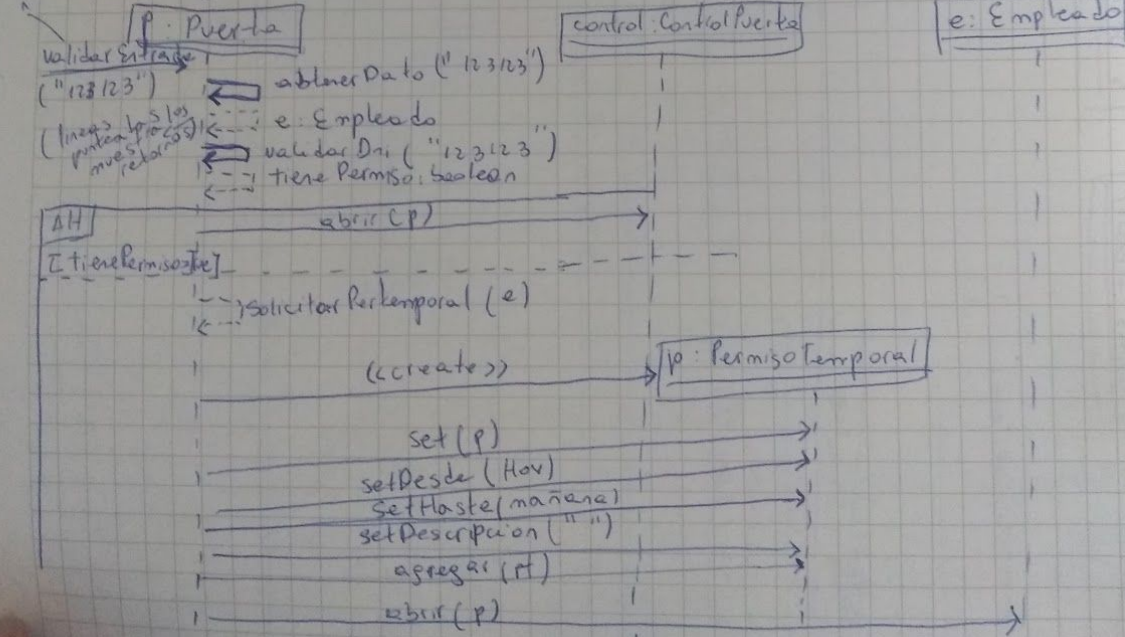 p : Puerta
control : ControlPuerta
e : Empleado
validarEntrada
("123123")
obtenerDato ("123123")
(lineas
punteadas los
muestro
retornos)
e : Empleado
validarDni ("123123")
tienePermiso: boolean
Alt
abrir (p)
[tienePermiso
SolicitarPertemporal (e)
<<create>>
p : PermisoTemporal
set (p)
setDesde (Hoy)
setHasta (mañana)
setDescripcion (" ")
agregar (pt)
abrir (p)